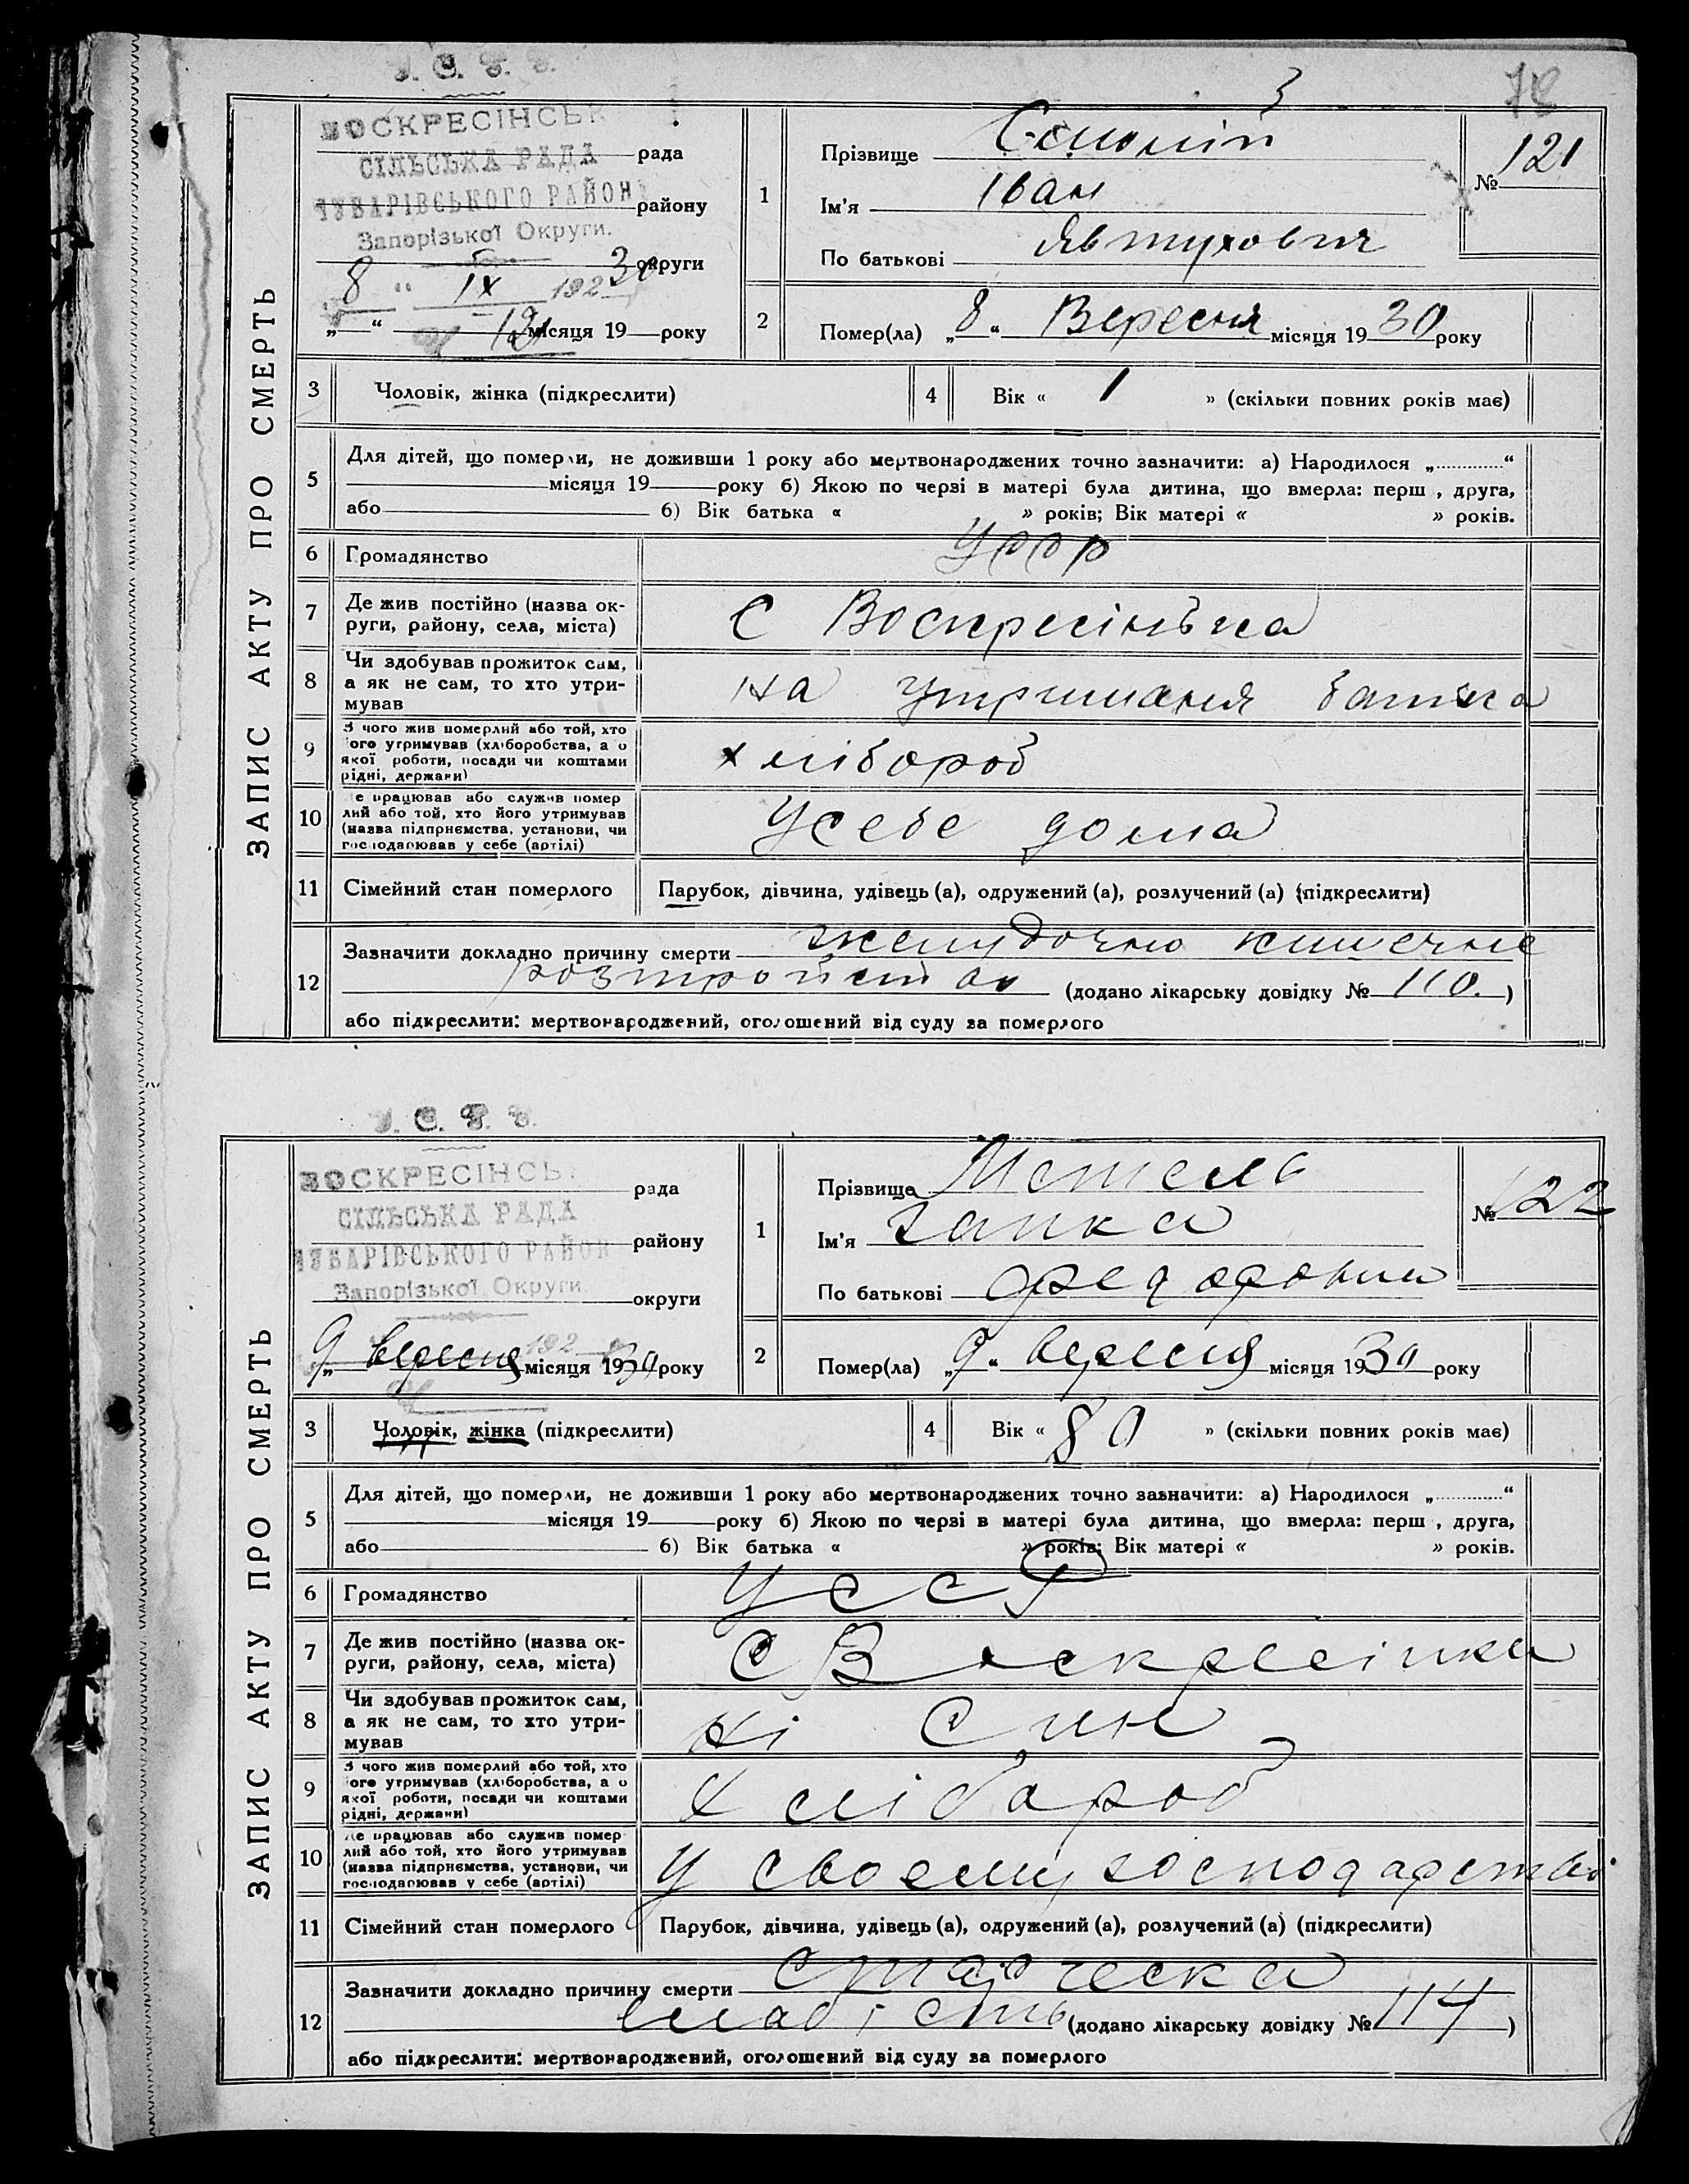 У. С. Р. Р.
78
ВОСКРЕСІНСЬК
СІЛЬСЬКА РАДА рада
ЧУБАРІВСЬКОГО РАЙОН району
Запорізької Округи.
округи
8 " IX 192 30
„ “ 121 місяця 19 року
1
Прізвище
Ім'я Іван
По батькові Явтухович
№ 121
2
Помер(ла) „ 8 “ Вересня місяця 19 30 року
ЗАПИС АКТУ ПРО СМЕРТЬ
3 Чоловік, жінка (підкреслити)
4 Вік « 1 » (скільки повних років має)
5 Для дітей, що померли, не доживши 1 року або мертвонароджених точно зазначити: а) Народилося „ “
місяця 19 року б) Якою по черзі в матері була дитина, що вмерла: перш , друга,
або б) Вік батька « » років; Вік матері « » років.
6 Громадянство УССР
7 Де жив постійно (назва ок-
руги, району, села, міста) С Воскресінька
8 Чи здобував прожиток сам,
а як не сам, то хто утри-
мував на утриманя батька
9 З чого жив померлий або той, хто
ого утримував (хліборобства, а о
якої роботи, посади чи коштами
рідні, держави) хлібороб
10 е працював або служив помер
лий або той, хто його утримував
(назва підприємства, установи, чи
господарював у себе (артілі) У себе дома
11 Сімейний стан померлого Парубок, дівчина, удівець (а), одружений (а), розлучений (а) (підкреслити)
12 Зазначити докладно причину смерти желудочно кишечне
розтройства (додано лікарську довідку № 110. )
або підкреслити: мертвонароджений, оголошений від суду за померлого
У. С. Р. Р.
ВОСКРЕСІНСЬ
рада
СІЛЬСЬКА РАДА
ЧУБАРІВСЬКОГО РАЙОН району
Запорізької Округи.
округи
192
„ 9 вересня місяця 19 30 року
1
Прізвище Метель
Ім'я Ганка
По батькові Федоровна
№ 122
2
Помер(ла) „ 9 “ вересня місяця 19 30 року
ЗАПИС АКТУ ПРО СМЕРТЬ
3 Чоловік, жінка (підкреслити)
4 Вік « 80 » (скільки повних років має)
5 Для дітей, що померли, не доживши 1 року або мертвонароджених точно зазначити: а) Народилося „ “
місяця 19 року б) Якою по черзі в матері була дитина, що вмерла: перш , друга,
або б) Вік батька « » років; Вік матері « » років.
6 Громадянство УССР
7 Де жив постійно (назва ок-
руги, району, села, міста) С Воскресінка
8 Чи здобував прожиток сам,
а як не сам, то хто утри-
мував ні Син
9 З чого жив померлий або той, хто
ого утримував (хліборобства, а о
якої роботи, посади чи коштами
рідні, держави) Хлібороб
10 е працював або служив помер
лий або той, хто його утримував
(назва підприємства, установи, чи
господарював у себе (артілі) У своєму господарстві
11 Сімейний стан померлого Парубок, дівчина, удівець (а), одружений (а), розлучений (а) (підкреслити)
12 Зазначити докладно причину смерти Старческа
слабість (додано лікарську довідку № 114 )
або підкреслити: мертвонароджений, оголошений від суду за померлого